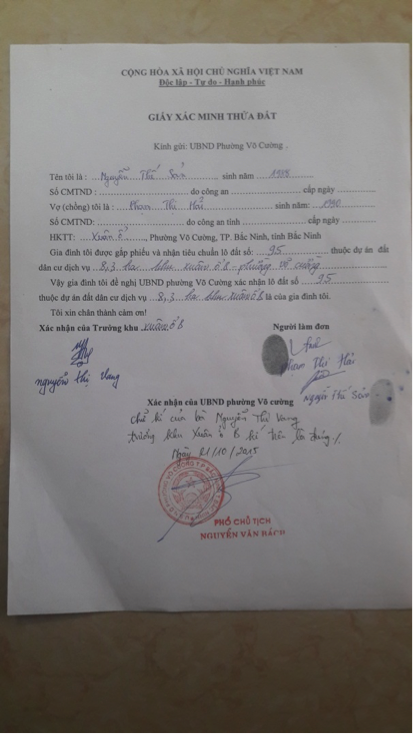 CỘNG HÒA XÃ HỘI CHỦ NGHĨA VIỆT NAM
Độc lập - Tự do - Hạnh phúc
GIẤY XÁC MINH THỬA ĐẤT
Kính gửi: UBND Phường Võ Cường .
Tên tôi là : Nguyễn Thế Sản sinh năm 1988
Số CMTND : do công an cấp ngày
Vợ (chồng) tôi là : Phạm Thị Hải sinh năm: 1990
Số CMTND: do công an tỉnh cấp ngày
HKTT: Xuân ổ , Phường Võ Cường, TP. Bắc Ninh, tỉnh Bắc Ninh
Gia đình tôi được gắp phiếu và nhận tiêu chuẩn lô đất số: 95 thuộc dự án đất
dân cư dịch vụ 8,3 ha khu xuân ổ B - phường võ cường
Vậy gia đình tôi đề nghị UBND phường Võ Cường xác nhận lô đất số 95
thuộc dự án đất dân cư dịch vụ 8,3 ha khu xuân ổ B là của gia đình tôi.
Tôi xin chân thành cảm ơn!
Xác nhận của Trưởng khu xuân ổ B
Người làm đơn
nguyễn thị vang
Phạm Thị Hải
Nguyễn Thế Sản
Xác nhận của UBND phường Võ cường
Chữ kí của bà Nguyễn Thị Vang
trưởng khu Xuân ổ B kí trên là đúng
Ngày 21/10/2015
PHÓ CHỦ TỊCH
NGUYỄN VĂN BÁCH